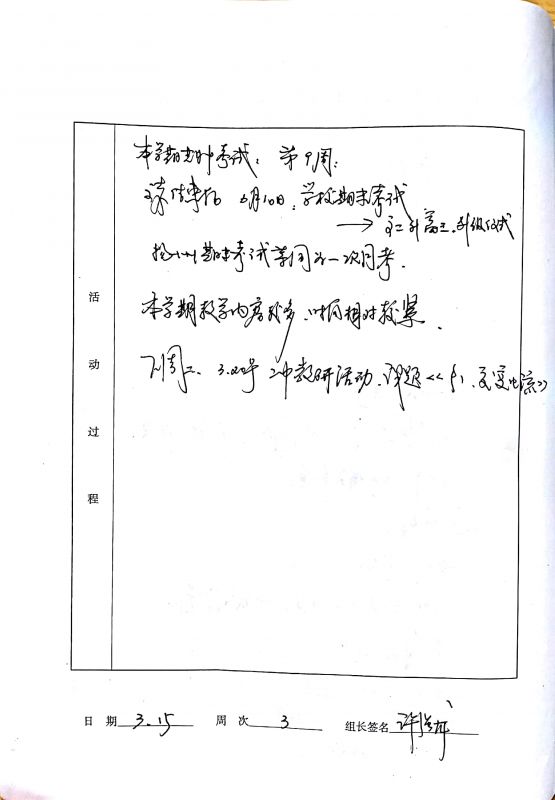 本学期期中考试：第9周；
6月10日：学校期末考试
→ 高二升高三，升级仪式
期末考试等同为一次月考．
本学期教学内容较多，时间相对较紧．
下周二、3.22号 二中教研活动．课题<<§1、交变电流>>
活动过程
日 期 3.15 周 次 3 组长签名